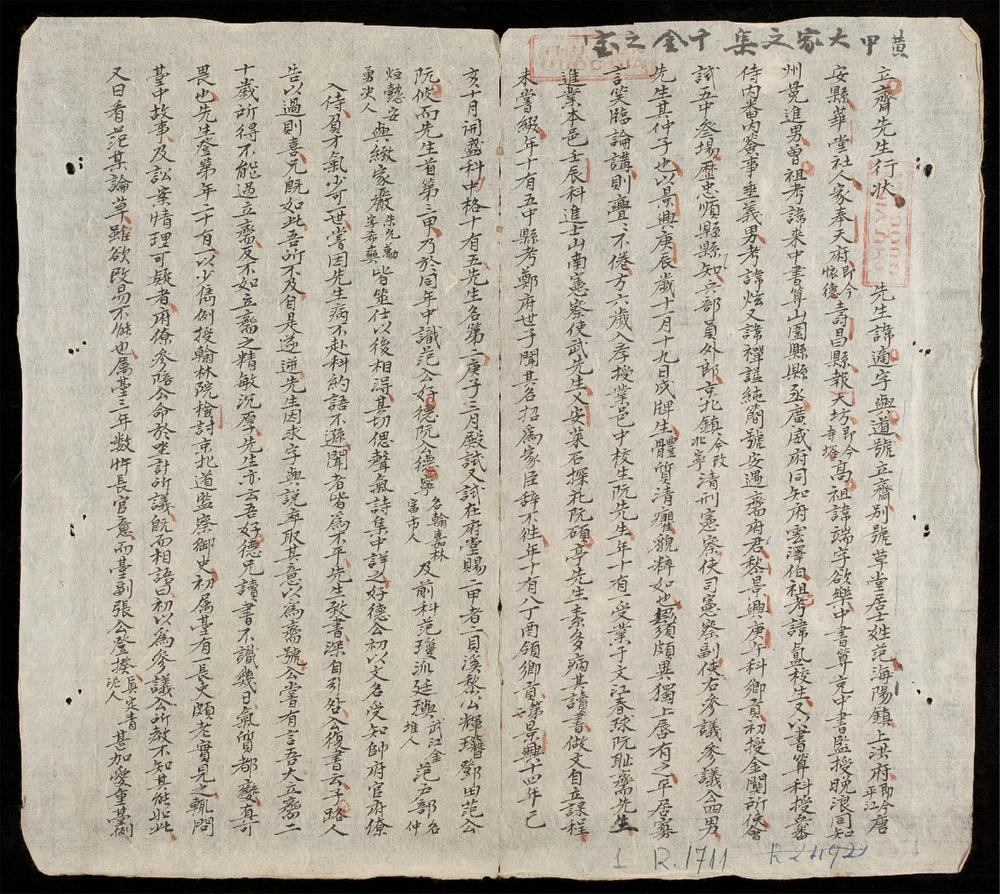 黃甲大家文集千金之宝
立齋先生行狀 先生諱適字與道號立齋別號草堂居士姓范海陽鎮上洪府即今平江唐
安縣華堂社人家奉天府即今懷德壽昌縣報天坊即今寺塔高祖諱端字欲樂中書算充中書監授晚浪同知
州覺進男曾祖考諱來中書算山圍縣縣丞廣威府同知府雲澤伯祖考諱氳校生又以書算科授番
侍內番內簽事垂義男考諱炫又諱禪謚純簡號安遇齋府君黎景興庚午科鄉貢初授金關所使會
試五中叁場歷忠順縣縣知兵部員外郎京北鎮今改北寧清刑憲察使司憲察副使右參議參議公四男
先生其仲子也以景興庚辰歲十一月十九日戌牌生體質清癯貌粹如也鬚頗異獨上唇有之平居寡
言笑臨論講則亹〻不倦方六歲入孝授業邑中校生阮先生年十有一受業于文江春球阮耻齋先生
進業本邑壬辰科進士山南憲察使武先生乂安萊石探花阮碩亭先生素多病其讀書做文自立課程
未嘗綴年十有五中縣考鄭府世子聞其名招為家臣辞不徃年十有八丁酉領鄉貢第景興四十年己
亥十月開盛科中格十有五先生名第二庚子三月殿試又試在府堂賜二甲者一目溪黎公輝瑨鄧田范公
阮攸而先生首第三甲乃於同年中識范公好德阮公德寧名翰嘉林富市人及前科范瓊派廷璵武江金堆人范戶部名仲
烜懿吾與緻家嚴朱允勵字希奭皆筮仕以後相得甚切偲聲氣詩集中詳之好德公初以文名受知帥府官府僚
勇決人
入侍負才氣少可一世嘗因先生病不赴科約語不遜聞者皆為不平先生致書深自引咎公復書云子路人
告以過則喜兄既如此吾所不及自是遂逬先生因求字與說卒取其意以為齋號公嘗有言吾大立齋二
十歲所得不能過立齋反不如立齋之精敏沉厚先生亦云吾好德兄讀書不識幾日氣質都變真可
畏也先生登第年二十有一以少儁例授翰林院檢討京北道監察御史初屬臺有一長史頗老實見之輒問
臺中故事及訟案情理可疑者府僚參陪公命於坐計所議既而相語曰初以為參議公所教不知其能如此
又曰看范某論草雖欲改易不能也屬臺三年数忤長官意而臺副張公登揆真定青泥人甚加愛重臺例
1 R.1711